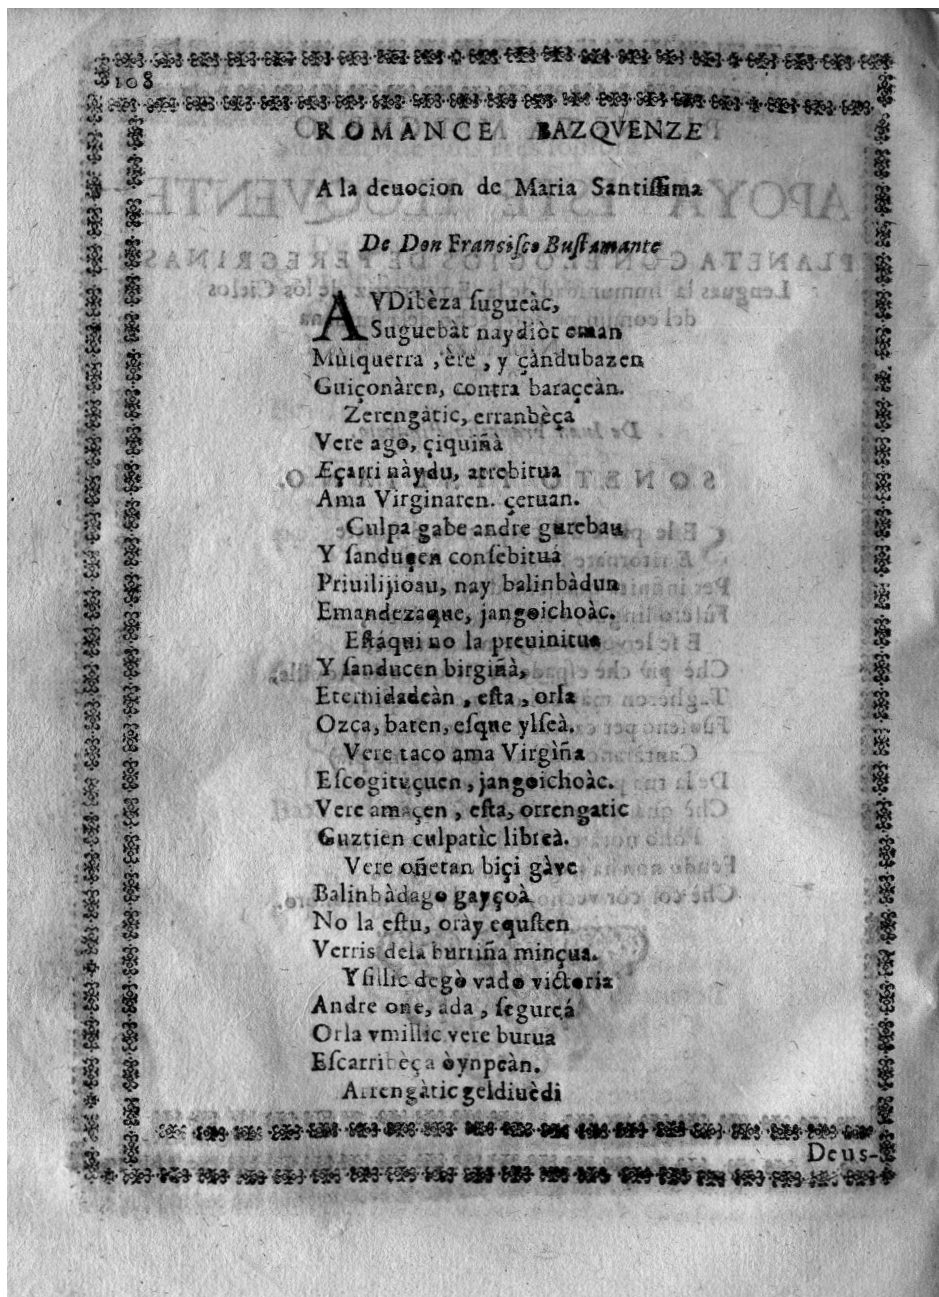 108
ROMANCE BAZQVENZE
A la deuocion de Maria Santissima
De Don Francisco Bustamante
AVDibèza sugueàc,
Suguebàt naydiòt eman
Mùsquerra, ère, y çàndubazen
Guiçonàren, contra baraçeàn.
Zerengàtic, erranbèça
Vere ago, çiquiñà
Æçarri nàydu, atrebitua
Ama Virginaren. çeruan.
Culpa gabe andre gurebau
Y sanduçen consebituá
Priuilijioau, nay balinbàdun
Emandezaque, jangoichoàc.
Estáqui no la preuinitua
Y sanducen birgiñà,
Eternidadeàn, esta, orla
Ozca, baten, esque ylseà.
Vere taco ama Virgìña
Escogituçuen, jangoichoàc.
Vere amaçen, esta, orrengatic
Guztien culpatìc libreà.
Vere oñetan biçi gàve
Balinbàdago gayçoà
No la estu, orày equsten
Verris dela burriña minçua.
Ysillic degò vado victoria
Andre one, ada, segureá
Orla vmillic vere burua
Escarribèça òynpeàn.
Arrengàtic geldiuèdi
Deus-